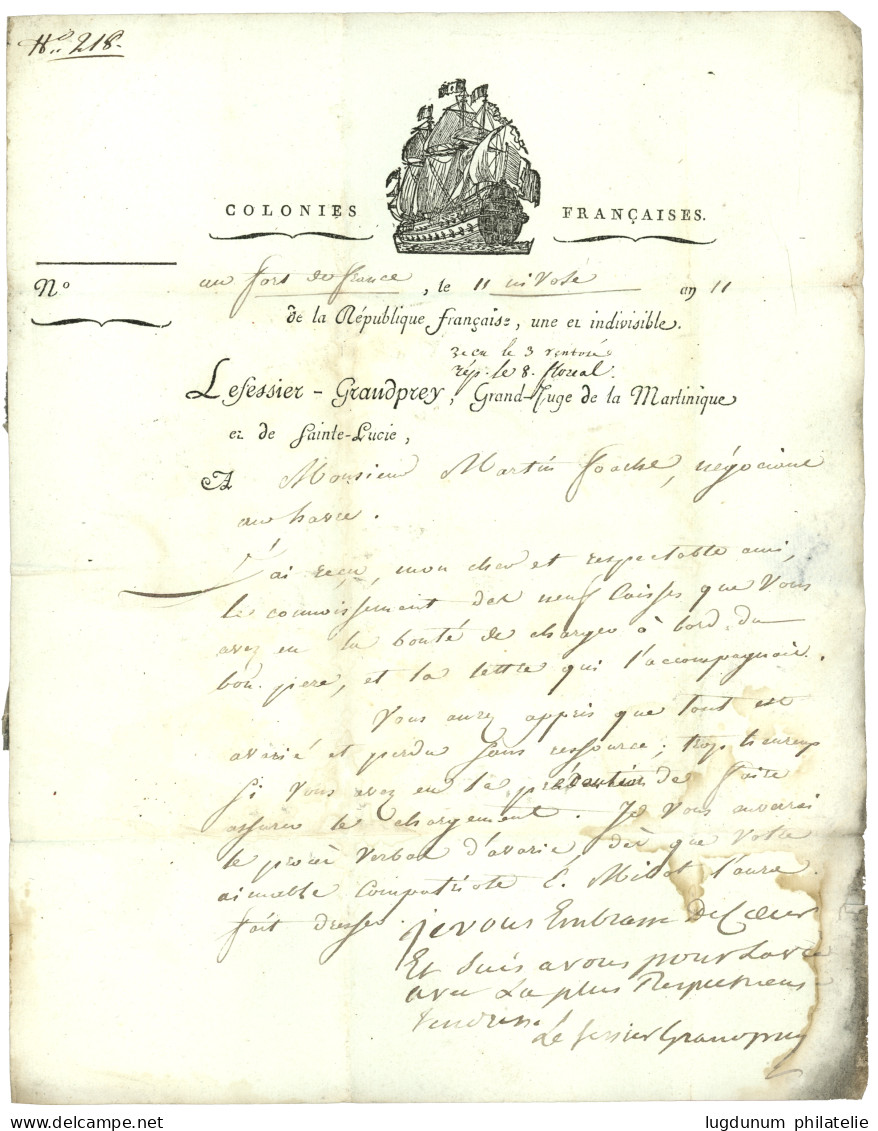 No. 218.
COLONIES FRANÇAISES.
No au fort de france, le 11 nivose an 11
de la République française, une et indivisible.
reçu le 3 ventose
rép. le 8. floréal.
Lefessier-Grandprey, Grand-Juge de la Martinique
et de Sainte-Lucie,
A Monsieur Martin foache, négociant
au havre.
J'ai reçu, mon cher et respectable ami,
le connoissement des neuf Caisses que Vous
avez eu la bonté de charger à bord du
bon. pere, et la lettre qui l'accompagnoit.
Vous aurez appris que tout est
avarié et perdu sans ressource; trop heureux
si Vous avez eu la précaution de faire
assurer le chargement. Je Vous enverrai
le procès Verbal d'avarie, dès que Votre
aimable Compatriote C. Millot l'aura
fait dresser. je vous Embrasse De Cœur
Et suis a vous pour La vie
avec La plus Respectueuse
tendresse.
Le fessier Grandprey
lugdunum philatelie